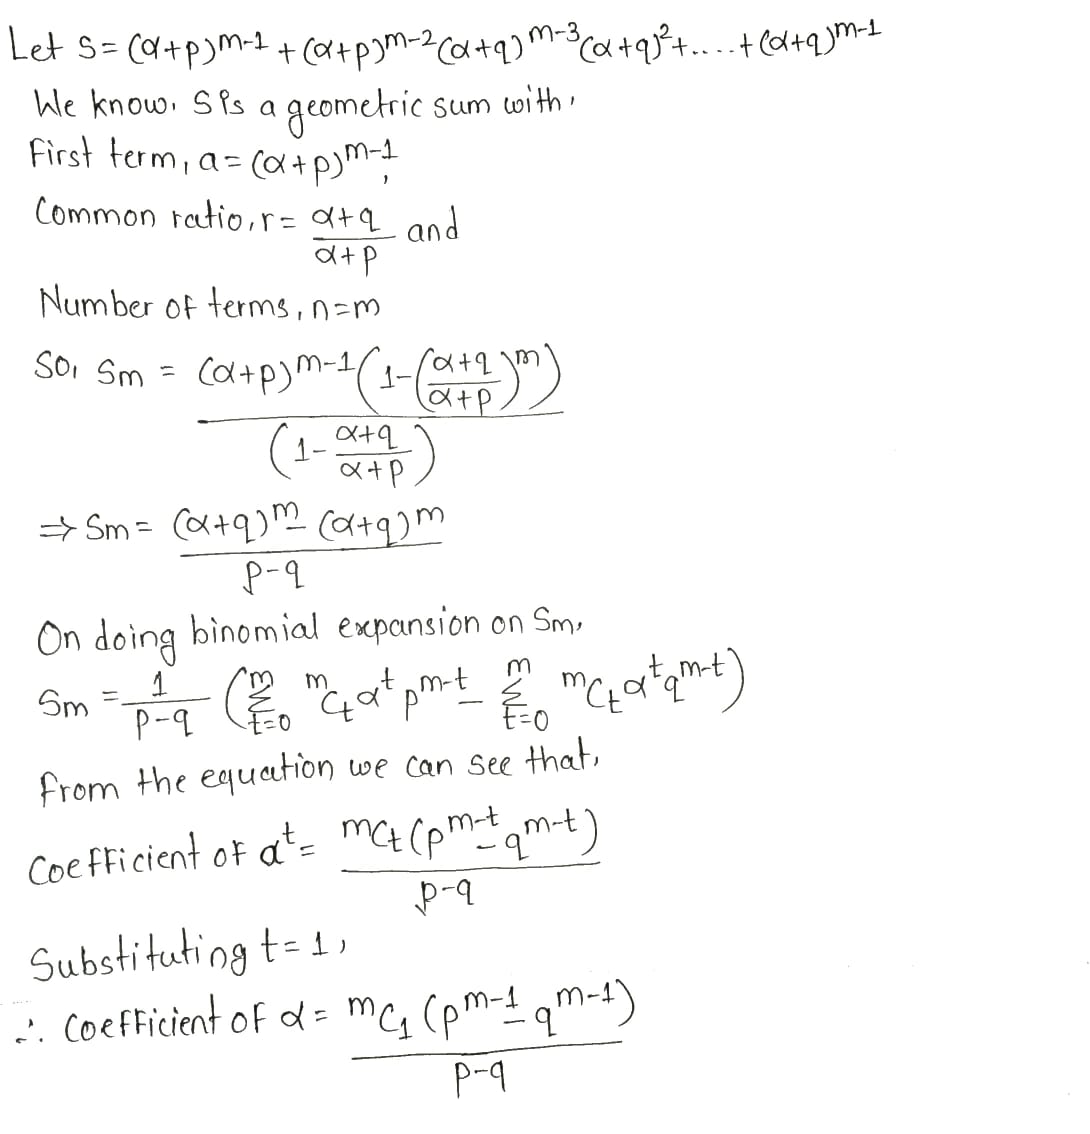 Let S = (α+p)^{m-1} + (α+p)^{m-2}(α+q)^{m-3}(α+q)^2 + ..... + (α+q)^{m-1}
We know, S is a geometric sum with,
First term, a = (α+p)^{m-1},
Common ratio, r = \frac{α+q}{α+p} and
Number of terms, n=m
So, Sm = \frac{(α+p)^{m-1}(1-(\frac{α+q}{α+p})^m)}{(1-\frac{α+q}{α+p})}
⇒ Sm = \frac{(α+q)^m - (α+q)^m}{p-q}
On doing binomial expansion on Sm,
Sm = \frac{1}{p-q} (\sum_{t=0}^{m} {}^mC_t α^t p^{m-t} - \sum_{t=0}^{m} {}^mC_t α^t q^{m-t})
From the equation we can see that,
Coefficient of α^t = \frac{{}^mC_t (p^{m-t} - q^{m-t})}{p-q}
Substituting t = 1,
∴ Coefficient of α = \frac{{}^mC_1 (p^{m-1} - q^{m-1})}{p-q}